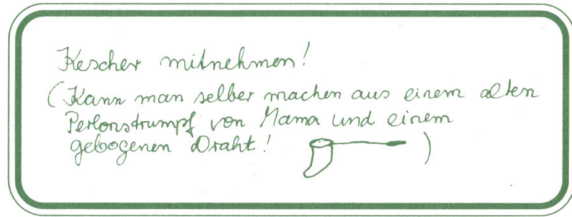 Kescher mitnehmen!
(Kann man selber machen aus einem alten
Perlonstrumpf von Mama und einem
gebogenen Draht! )